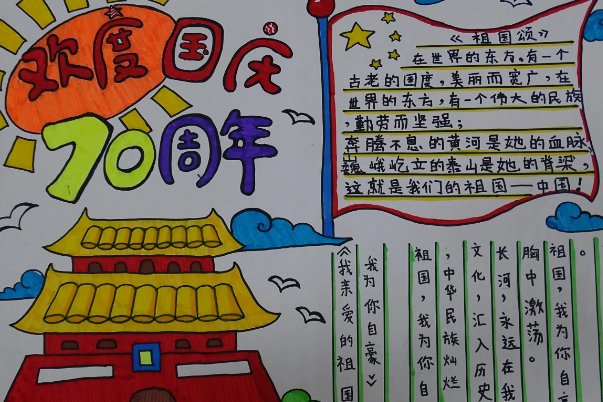 欢度国庆
70周年
《祖国颂》
在世界的东方,有一个
古老的国度,美丽而宽广,在
世界的东方,有一个伟大的民族
,勤劳而坚强;
奔腾不息的黄河是她的血脉,
巍峨屹立的泰山是她的脊梁,
这就是我们的祖国——中国!
《我亲爱的祖国
我为你自豪》
祖国,我为你自
,中华民族灿烂
文化,汇入历史
长河,永远在我
胸中激荡。
祖国,我为你自
。